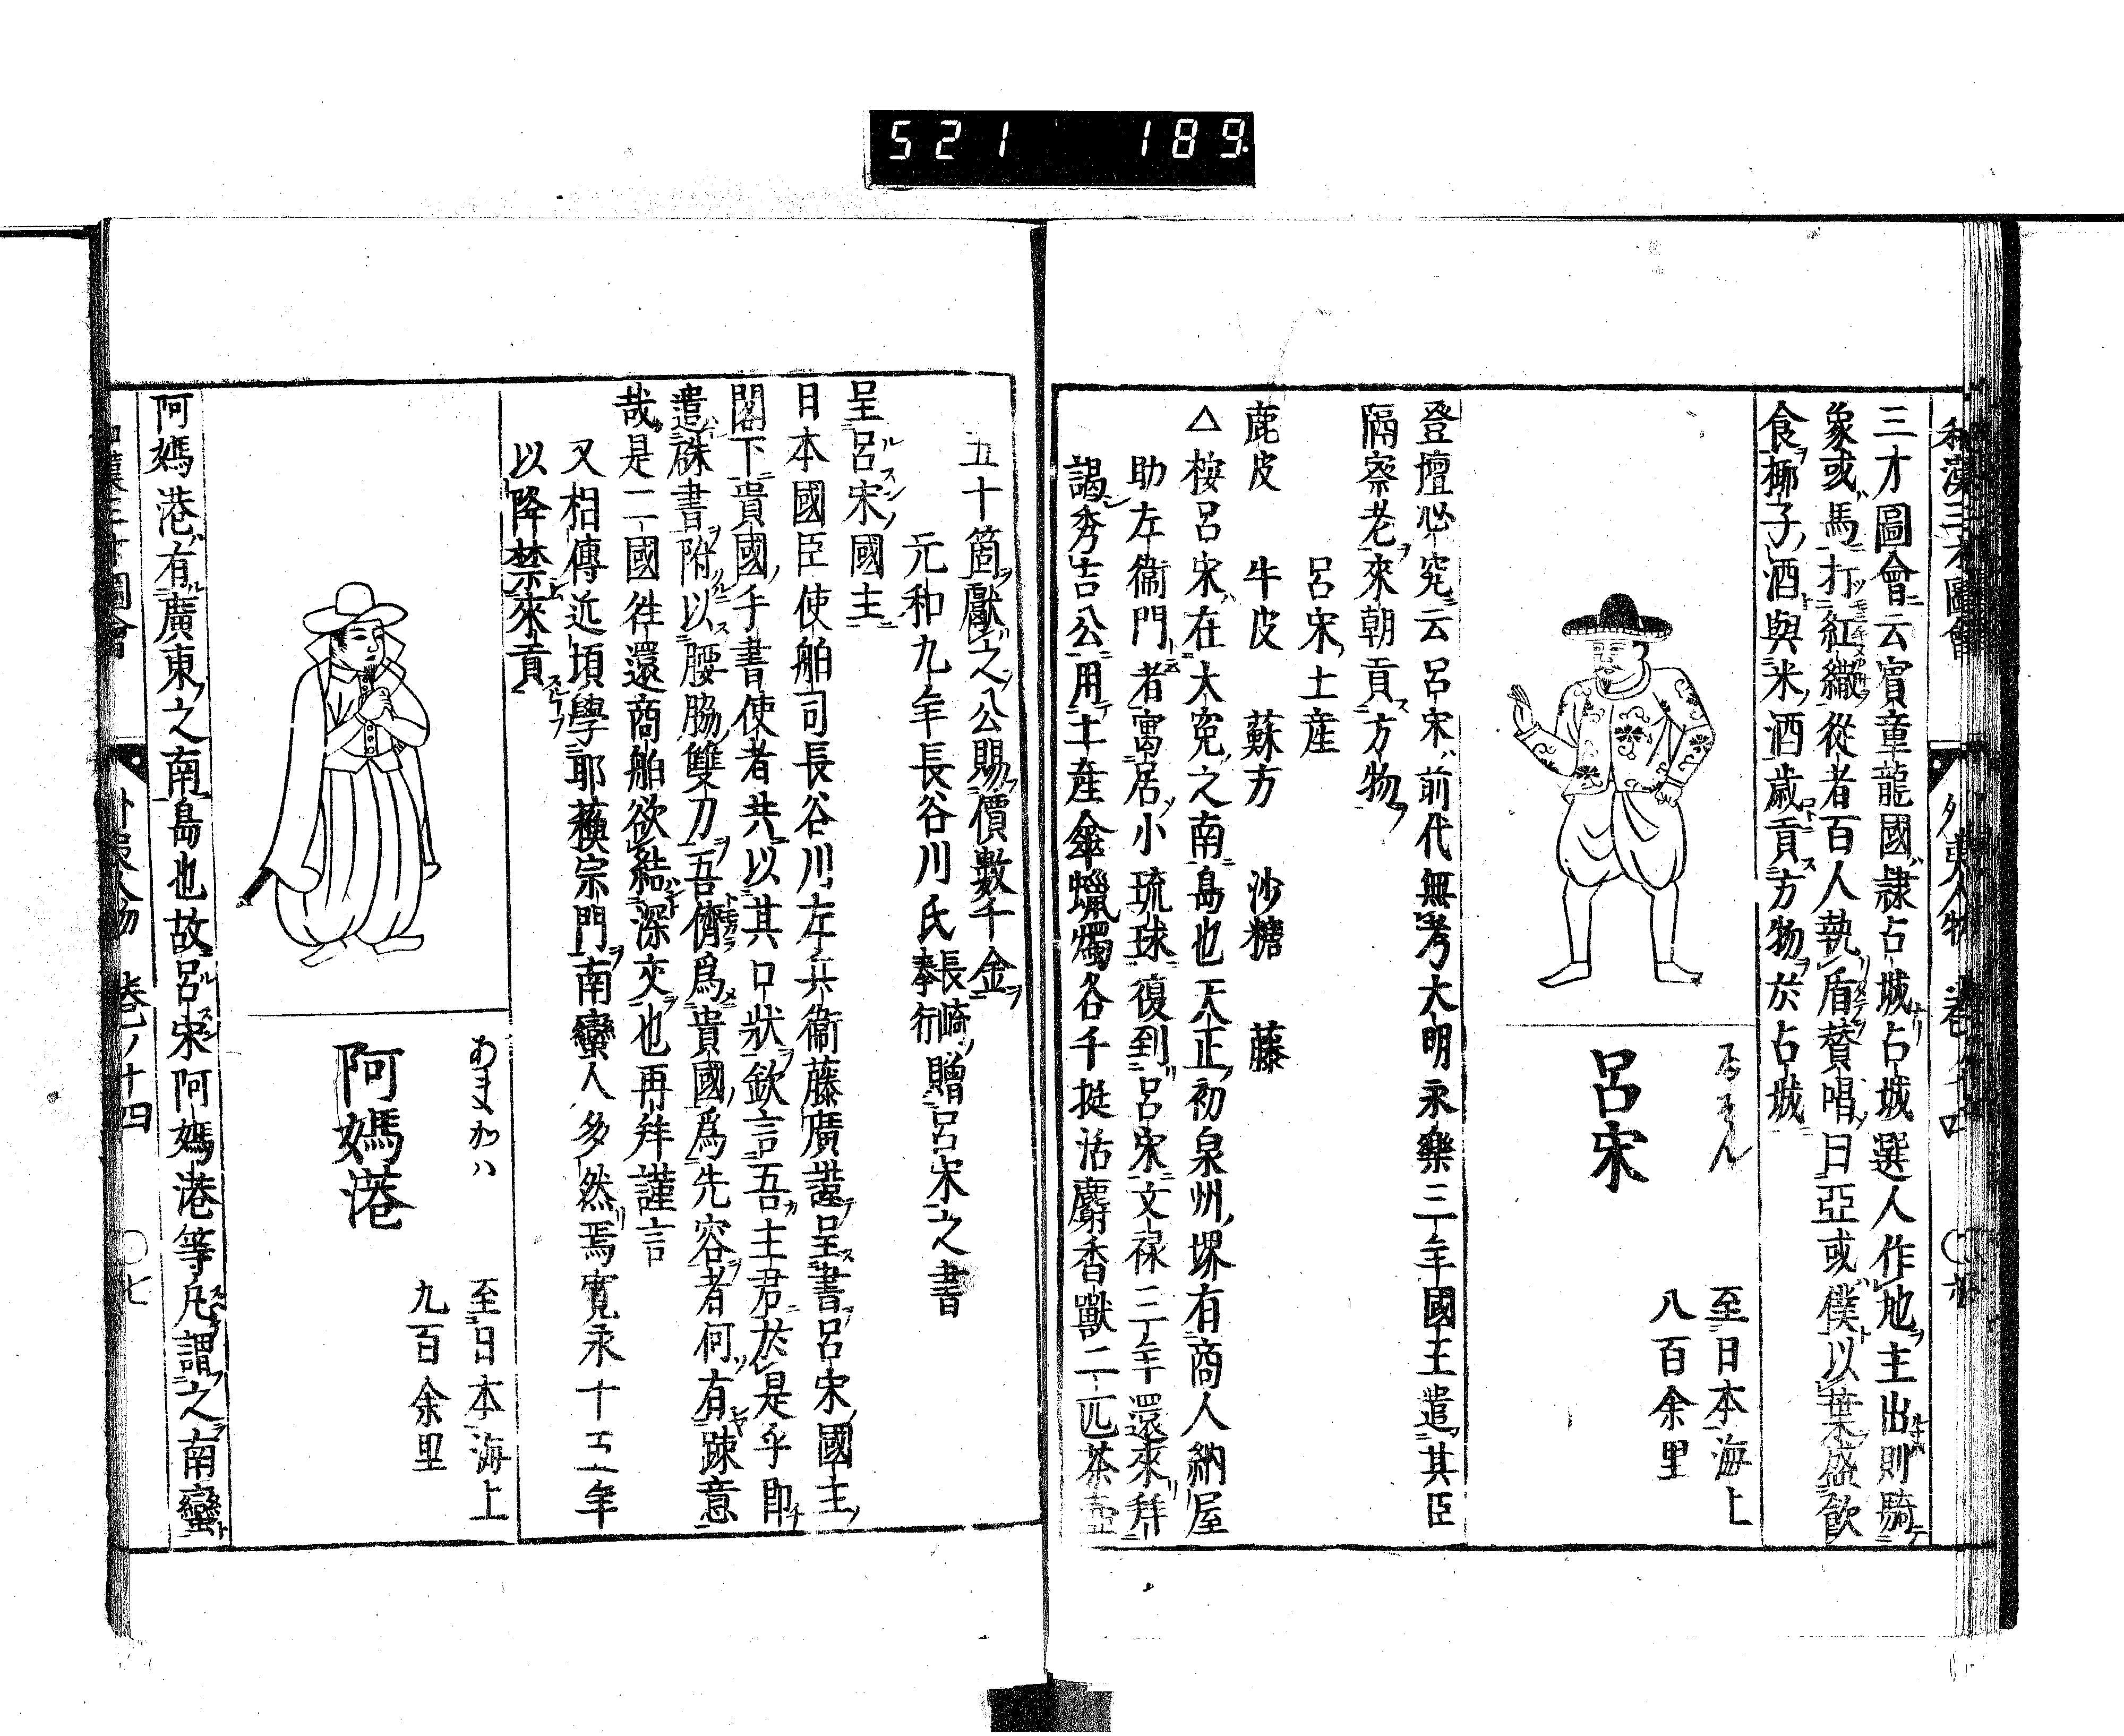 521 189
和漢三才圖會 外夷人物 卷ノ十四
三才圖會云賓童龍國隷占城占城選人作地主出則騎
象或馬打紅繖從者百人執盾賛唱曰亞或僕以葉盛飲
食椰子酒與米酒歳貢方物於占城
呂宋
至日本海上
八百余里
登壇必究云呂宋前代無考大明永樂三年國王遣其臣
隔察老來朝貢方物
呂宋土産
鹿皮 牛皮 蘇方 沙糖 藤
△按呂宋在太寃之南島也天正初泉州堺有商人納屋
助左衞門者寓居小琉球復到呂宋文禄三年還來拜
謁秀吉公用土産傘蠟燭各千挺活麝香獸二匹茶壺
五十箇獻之公賜價數千金
元和九年長谷川氏長崎奉行贈呂宋之書
呈呂宋國主
日本國臣使舶司長谷川左兵衞藤廣謹呈書呂宋國主
閣下貴國手書使者共以其口狀欽言吾主君於是乎即
遣硃書附以腰脇雙刀吾儕爲貴國爲先容者何有踈意
哉是二國徃還商舶欲結深交也再拜謹言
又相傳近頃學耶蘓宗門南蠻人多然焉寛永十二年
以降禁來貢
あまかハ
阿媽港
至日本海上
九百余里
阿媽港有廣東之南島也故呂宋阿媽港等凡謂之南蠻
和漢三才圖會 外夷人物 卷ノ十四 〇七